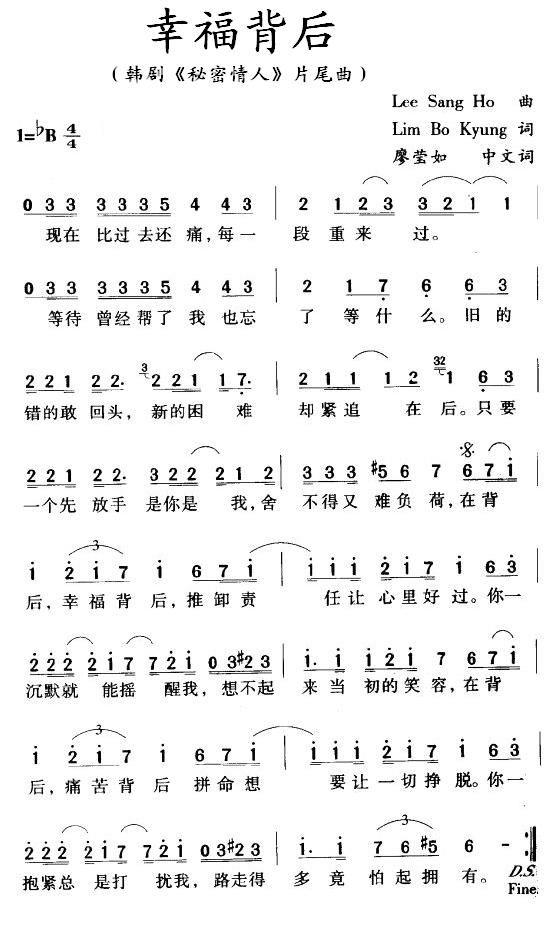 幸福背后
(韩剧《秘密情人》片尾曲)
Lee Sang Ho 曲
1=♭B 4/4 Lim Bo Kyung 词
廖莹如 中文词
0 3 3 3 3 3 5 4 4 3 | 2 1 2 3 3 2 1 1
现在 比过去还 痛,每一 段 重来 过。
0 3 3 3 3 3 5 4 4 3 | 2 1 7 6 6 3
等待 曾经帮了 我 也忘 了 等什 么。旧的
2 2 1 2 2. 3 2 2 1 1 7. | 2 1 1 1 2 32 1 6 3
错的敢 回头, 新的困 难 却紧追 在 后。只要
2 2 1 2 2. 3 2 2 2 1 2 | 3 3 3 #5 6 7 6 7 1
一个先 放手 是你是 我,舍 不得又 难负 荷,在背
3
1 2 1 7 1 6 7 1 | 1 1 2 1 7 1 6 3
后,幸福背 后,推卸责 任让 心里好 过。你一
2 2 2 2 1 7 7 2 1 0 3 #2 3 | 1. 1 1 2 1 7 6 7 1
沉默就 能摇 醒我, 想不起 来当 初的笑 容,在背
3
1 2 1 7 1 6 7 1 | 1 1 1 2 1 7 1 6 3
后,痛苦背 后 拼命想 要让一切挣 脱。你一
2 2 2 2 1 7 7 2 1 0 3 #2 3 | 1. 1 7 6 #5 6 - :
抱紧总 是打 扰我,路走得 多竟 怕起拥 有。
3
D.S.
Fine.